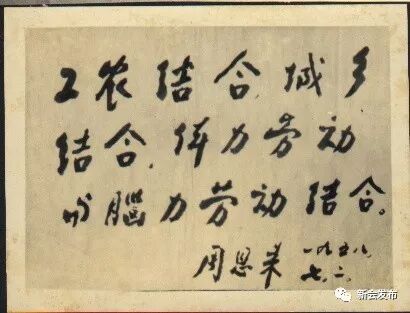 工农结合，城乡
结合，体力劳动
与脑力劳动结合。
周恩来 一九五八、
七、二、
新会发布